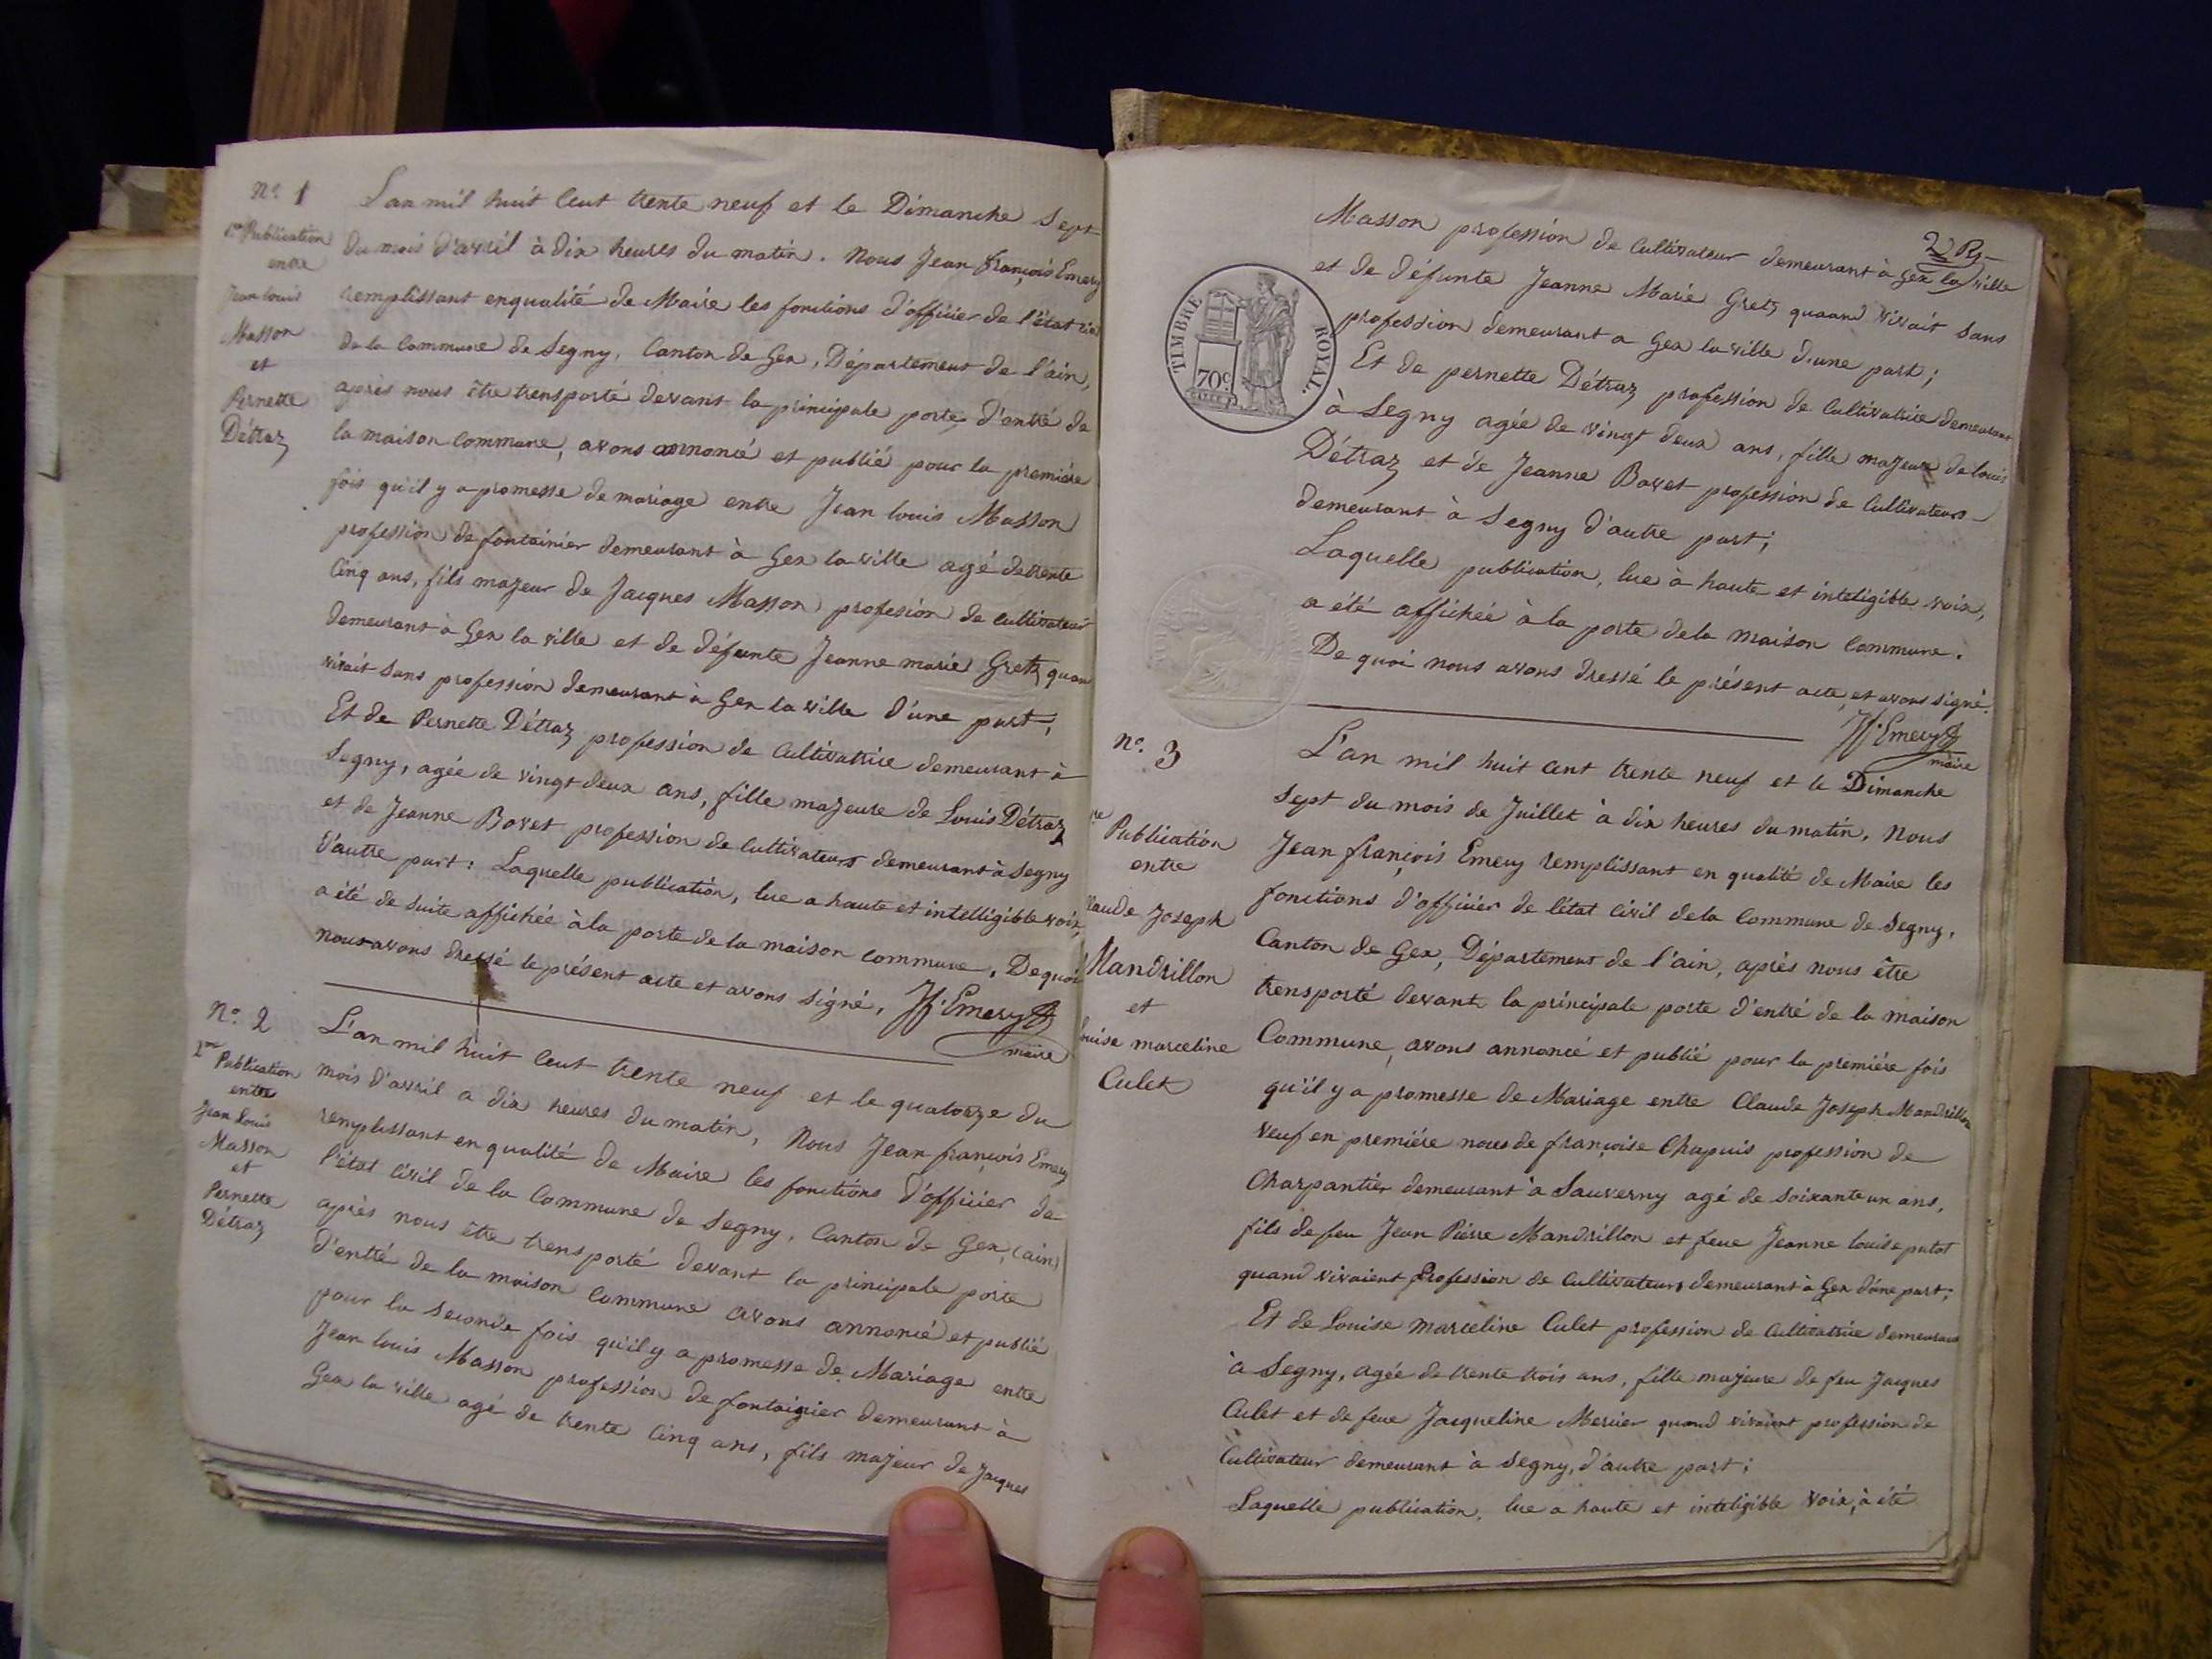 N.º 1
1.re Publication
entre
Jean louis
Masson
et
Pernette
Détraz
L'an mil huit Cent trente neuf et le Dimanche Sept
du mois d'avril à dix heures du matin. Nous Jean françois Emery
remplissant enqualité de Maire les fonctions d'officier de l'état civil
de la Commune de Segny, Canton de Gex, Département de l'ain,
après nous être transporté devant la principale porte d'entré de
la maison Commune, avons annoncé et publié pour la première
fois qu'il y a promesse de mariage entre Jean louis Masson
profession de fontainier demeurant à Gex la ville agé de trente
Cinq ans, fils majeur de Jacques Masson profesion de cultivateur
demeurant à Gex la ville et de défunte Jeanne marie Gretz quan
vivait sans profession demeurant à Gex la ville d'une part;
Et de Pernette Détraz profession de Cultivatrice demeurant à
Segny, agée de vingt deux ans, fille majeure de Louis Détraz
et de Jeanne Bovet profession de Cultivateurs demeurant à Segny
d'autre part: Laquelle publication, lue a haute et intelligible voix,
a été de suite affichée à la porte de la maison commune. De quoi
nous avons dressé le présent acte et avons signé, Jf. Emery
maire
N.º 2
2.me Publication
entre
Jean Louis
Masson
et
Pernette
Détraz
L'an mil huit Cent trente neuf et le quatorze du
mois d'avril a dix heures du matin, Nous Jean françois Emery
remplissant en qualité de Maire les fonctions d'officier de
l'état Civil de la Commune de Segny, Canton de Gex, (ain)
après nous être transporté devant la principale porte
d'entré de la maison Commune avons annoncé et publié
pour la seconde fois qu'il y a promesse de Mariage entre
Jean louis Masson profession de fontaignier demeurant à
Gex la ville agé de trente Cinq ans, fils majeur de Jacques
Masson profession de Cultivateur demeurant à Gex la ville
et de défunte Jeanne Marie Gretz quaand vivait sans
profession demeurant a Gex la ville d'une part;
Et de pernette Détraz profession de Cultivatrice demeurant
à Segny agée de vingt deux ans, fille majeure de louis
Détraz et de Jeanne Bovet profession de Cultivateurs
demeurant à Segny d'autre part;
Laquelle publication, lue à haute et inteligible voix,
a été affichée à la porte de la maison Commune.
De quoi nous avons dressé le présent acte, et avons signé.
Jf. Emery
maire
TIMBRE ROYAL.
70c.
N.º 3
re Publication
entre
laude Joseph
Mandrillon
et
ouise marceline
Culet
L'an mil huit cent trente neuf et le Dimanche
Sept du mois de Juillet à dix heures du matin. Nous
Jean françois Emery remplissant en qualité de Maire les
fonctions d'officier de l'état Civil de la Commune de Segny,
Canton de Gex, Département de l'ain, après nous être
transporté devant la principale porte d'entré de la maison
Commune, avons annoncé et publié pour la première fois
qu'il y a promesse de Mariage entre Claude Joseph Mandrillon
veuf en première noces de françoise Chapuis profession de
Charpantier demeurant à Sauverny agé de soixante un ans,
fils de feu Jean Pierre Mandrillon et feue Jeanne louise putot
quand vivaient profession de Cultivateurs demeurant à Gex d'une part;
Et de Louise Marceline Culet profession de Cultivatrice demeurant
à Segny, agée de trente trois ans, fille majeure de feu Jacques
Culet et de feue Jacqueline Mercier quand vivaient profession de
Cultivateur demeurant à Segny, d'autre part;
Laquelle publication, lue a haute et inteligible voix, à été